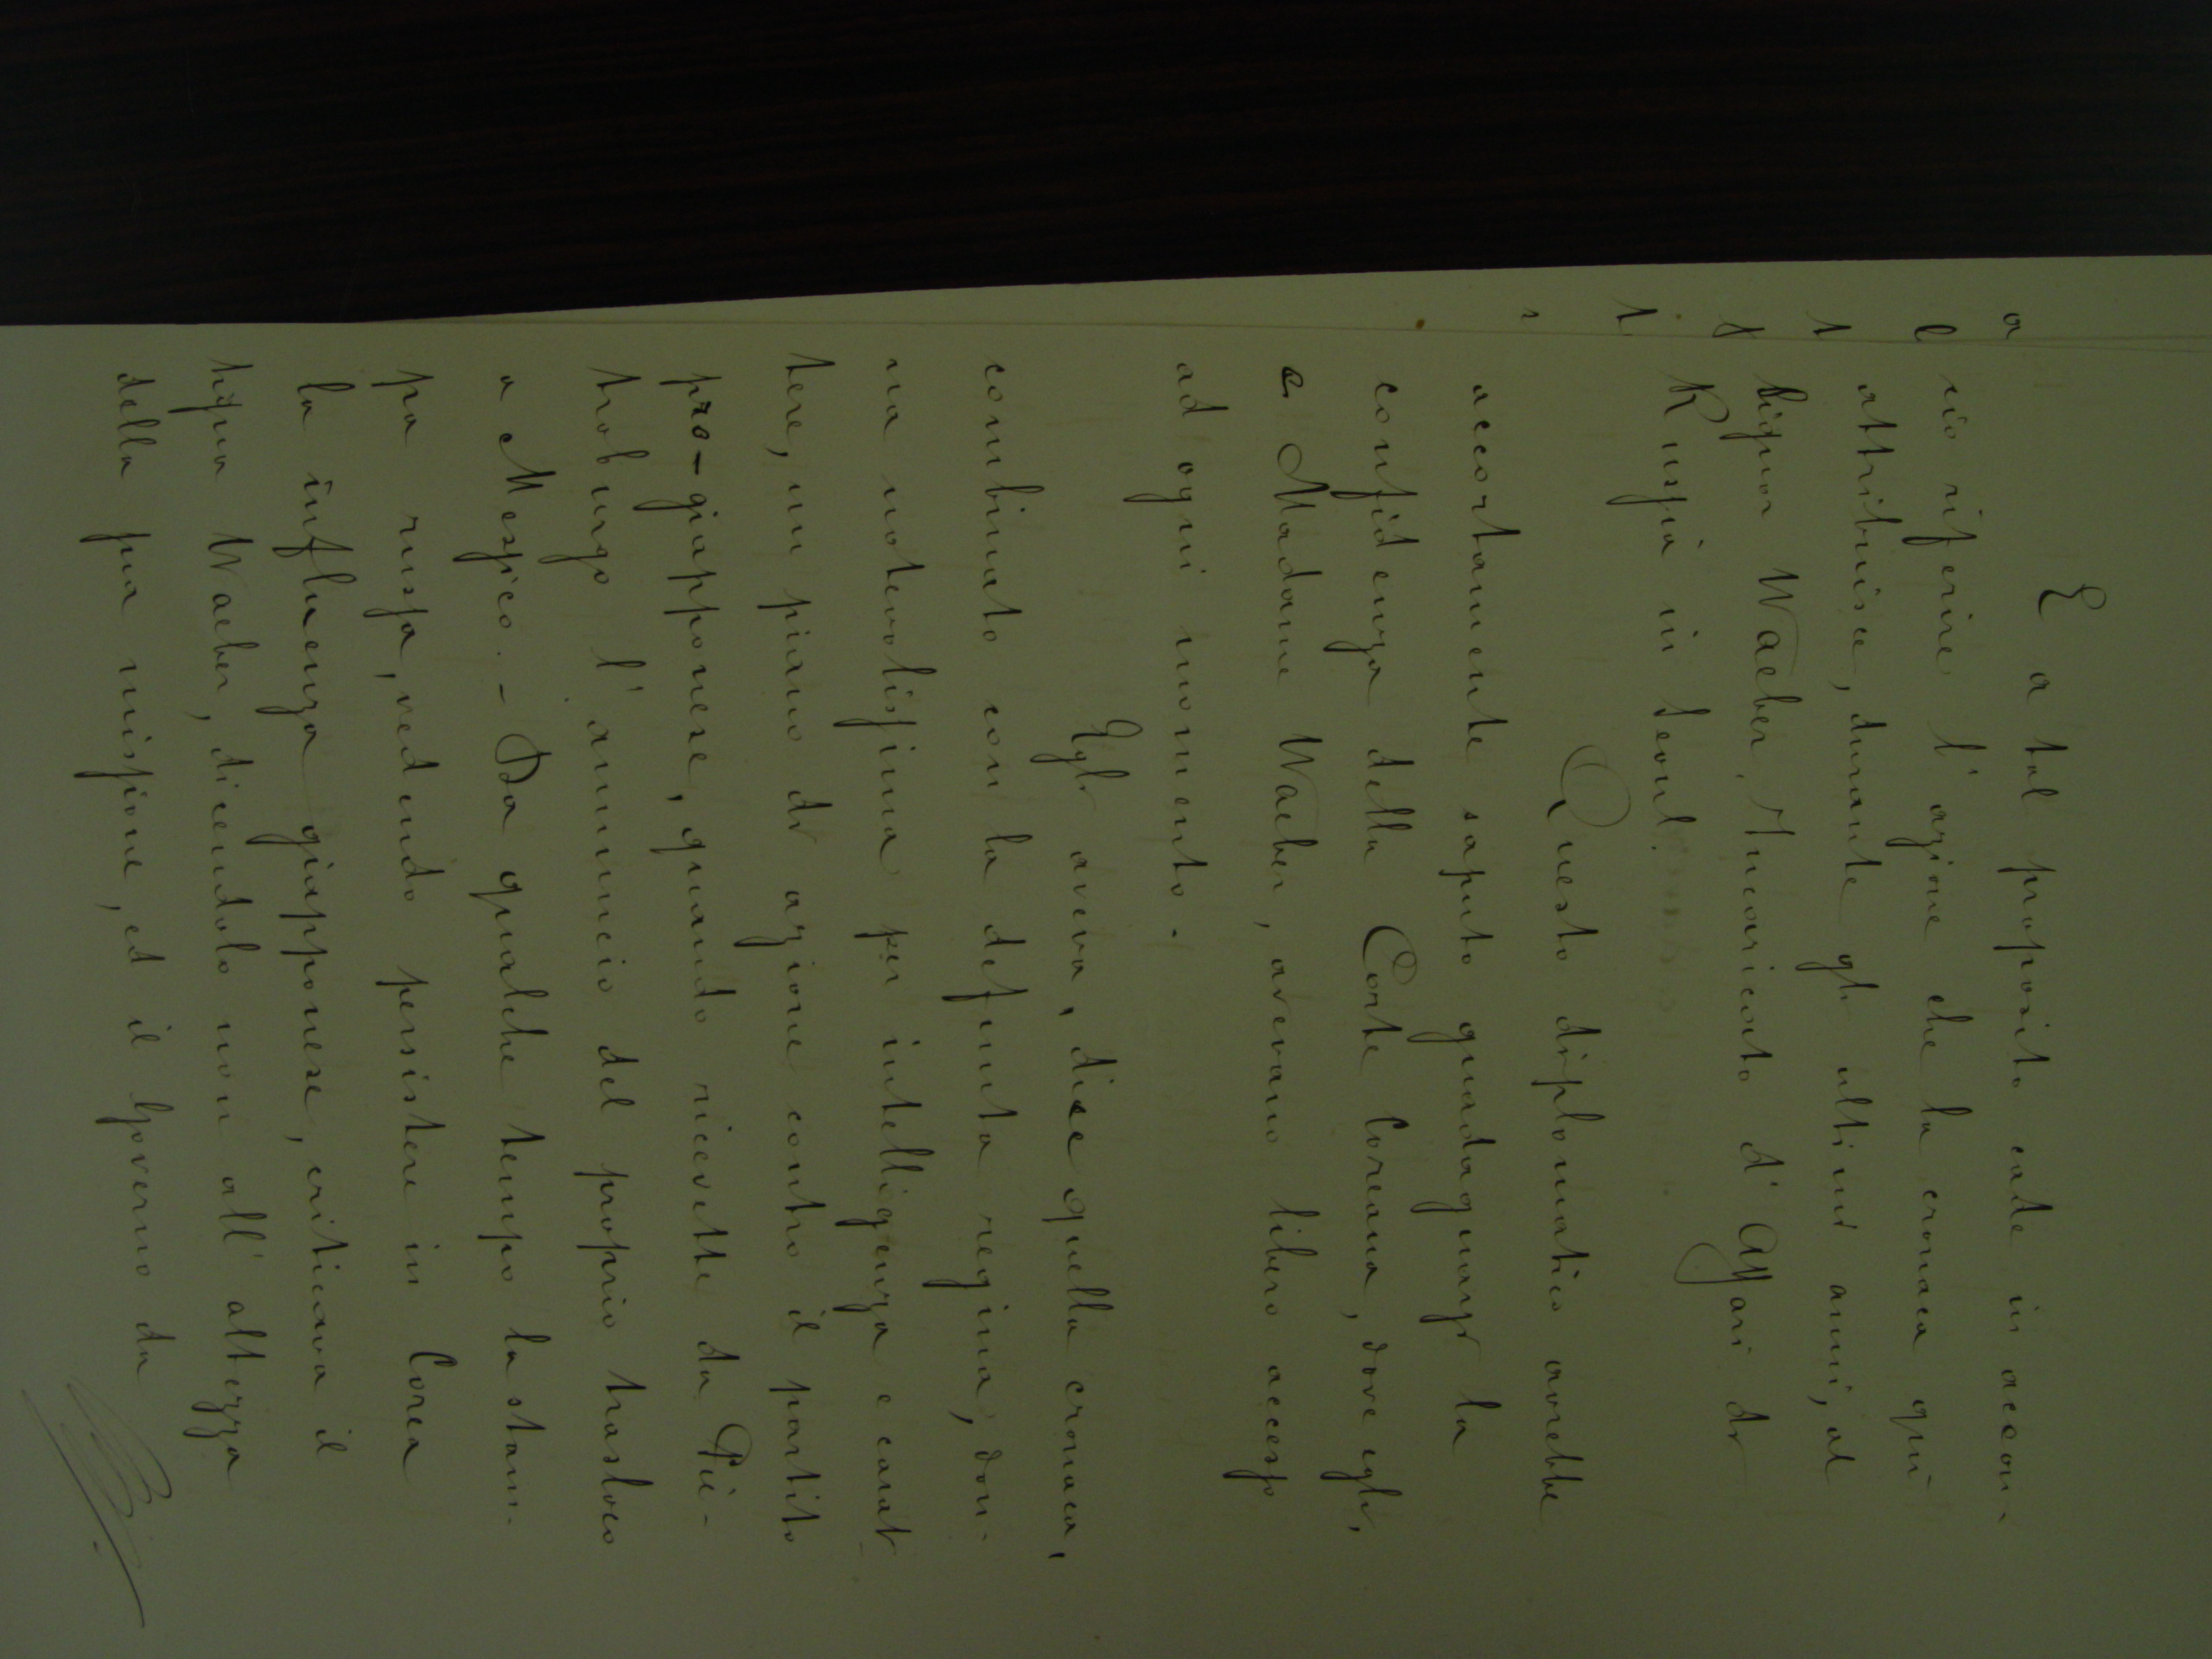 E a tal proposito cade in accon-
cio riferire l'azione che la cronaca qui
attribuisce, durante gli ultimi anni, al
Signor Waeber, Incaricato d'Affari di
Russia in Seoul.
Questo diplomatico avrebbe
accortamente saputo guadagnarsi la
confidenza della Corte Coreana, dove egli,
e Madame Waeber, avevano libero accesso
ad ogni momento.
Egli aveva, dice quella cronaca,
combinato con la defunta regina, don-
na notevolissima per intelligenza e carat-
tere, un piano di azione contro il partito
pro-giapponese, quando ricevette da Pie-
troburgo l'annuncio del proprio trasloco
a Messico. - Da qualche tempo la stam-
pa russa, vedendo persistere in Corea
la influenza giapponese, criticava il
Signor Waeber, dicendolo non all'altezza
della sua missione, ed il Governo da